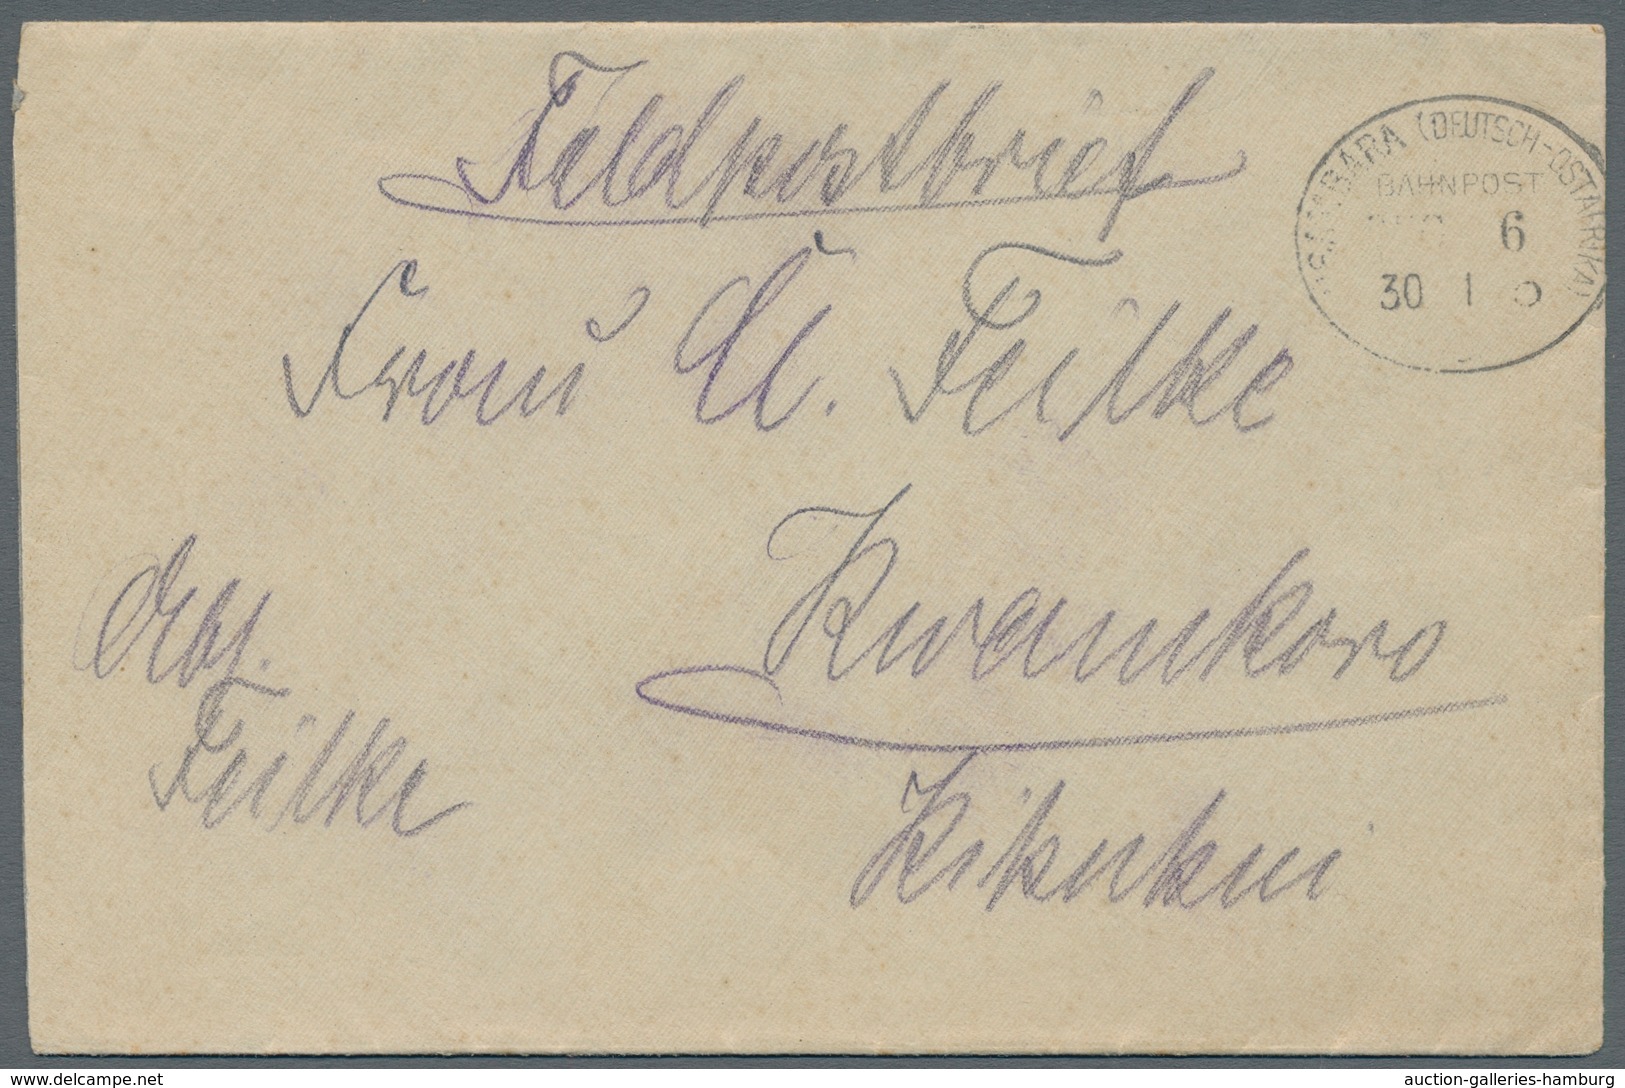 Feldpostbrief
USAMBARA (DEUTSCH-OSTAFRIKA)
BAHNPOST
6
30 1
Frau Cl. Feilke
Kwamkoro
Abs.
Feilke
Kikuhui
delcampe.net
auction-galleries-hamburg